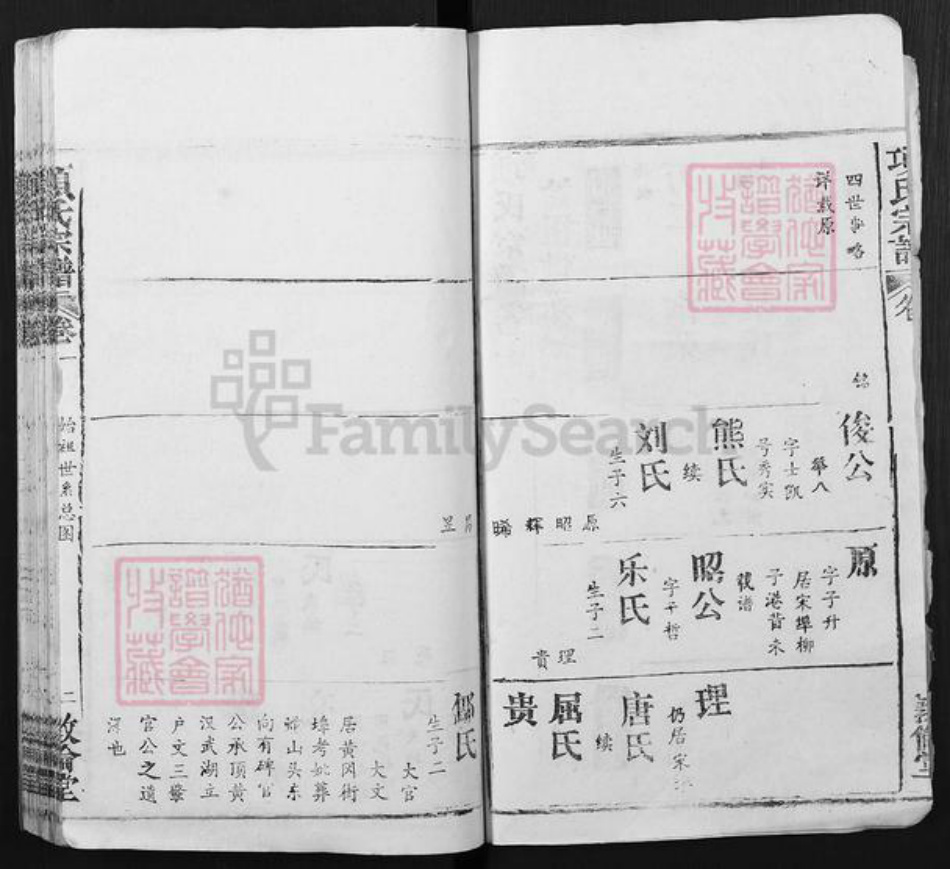 项氏宗谱
卷
四世事略
详载原
俊公
第八
字士凯
号秀实
熊氏
续
刘氏
生子六
原
昭
辉
晞
昌
昱
原
字子升
居宋埠柳
子港苗未
後谱
昭公
字子哲
乐氏
生子二
理
贵
理
仍居宋埠
唐氏
续
屈氏
贵
邹氏
生子二
大官
大文
居黄冈街
埠考妣葬
山头东
向有碑官
公承顶黄
汉武湖立
户文三
官公之遗
泽也
项氏宗谱
卷一
始祖世系总图
二
敦伦堂
FamilySearch